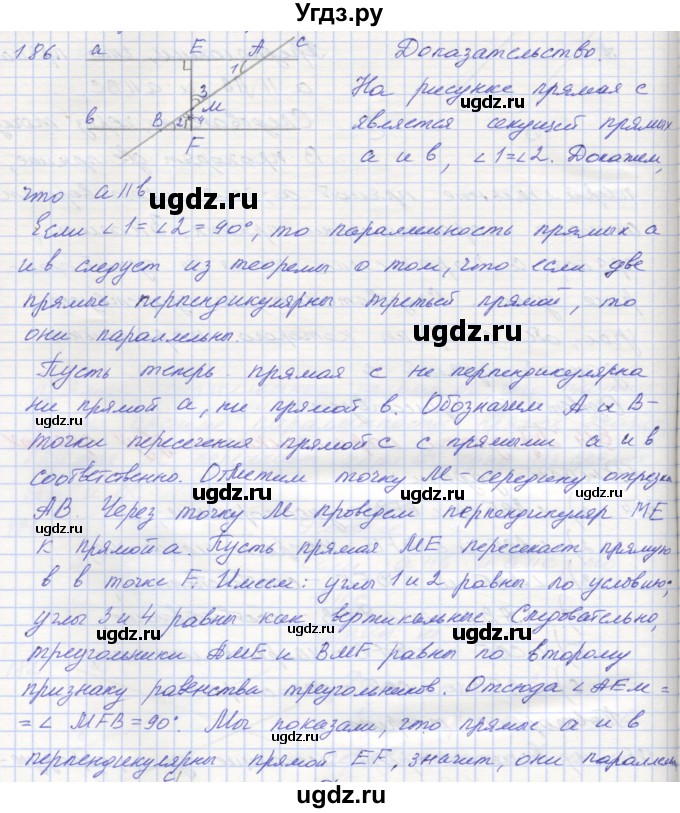 Угдз.ру
186. a E A c Доказательство.
1 3 M На рисунке прямая c
b B 2 4 является секущей прямых
F a и b, ∠1=∠2. Докажем,
что a∥b
ugdz.ru
Если ∠1=∠2=90°, то параллельность прямых a
и b следует из теоремы о том, что если две
прямые перпендикулярны третьей прямой, то
они параллельны.
ugdz.ru
Пусть теперь прямая c не перпендикулярна
ни прямой a, ни прямой b. Обозначим A и B-
ugdz.ru
точки пересечения прямой c с прямыми a и b
соответственно. Отметим точку M-середину отрезка
ugdz.ru
AB. Через точку M проведем перпендикуляр ME
к прямой a. Пусть прямая ME пересекает прямую
b в точке F. Имеем: углы 1 и 2 равны по условию;
углы 3 и 4 равны как вертикальные. Следовательно,
ugdz.ru ugdz.ru
треугольники AME и BMF равны по второму
признаку равенства треугольников. Отсюда ∠AEM=
=∠MFB=90°. Мы показали, что прямые a и b
ugdz.ru ugdz.ru
перпендикулярны прямой EF, значит, они параллельны
ugdz.ru